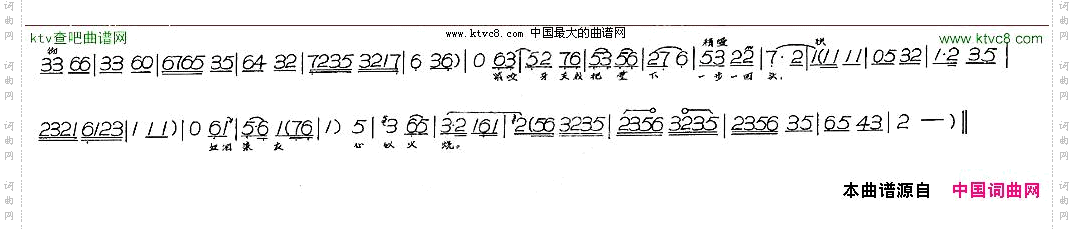 www.ktvc8.com 中国最大的曲谱网
ktv查吧曲谱网 www.ktvc8.com
33 66|33 60|6765 35|64 32|7235 3217|6 36)|0 63|52 76|53 56|27 6|53 22|7·2|1(11 11|05 32|1·2 35|
咬 牙 关 下 一 步 一 回 头。
2321 6123|1 11)|0 61|56 1(76|1) 5|3 65|3·2 161|2(56 3235|2356 3235|2356 35|65 43|2 —)‖
心 似 火 烧。
本曲谱源自 中国词曲网
词曲网
词曲网
词曲网
词曲网
词曲网
词曲网
词曲网
词曲网